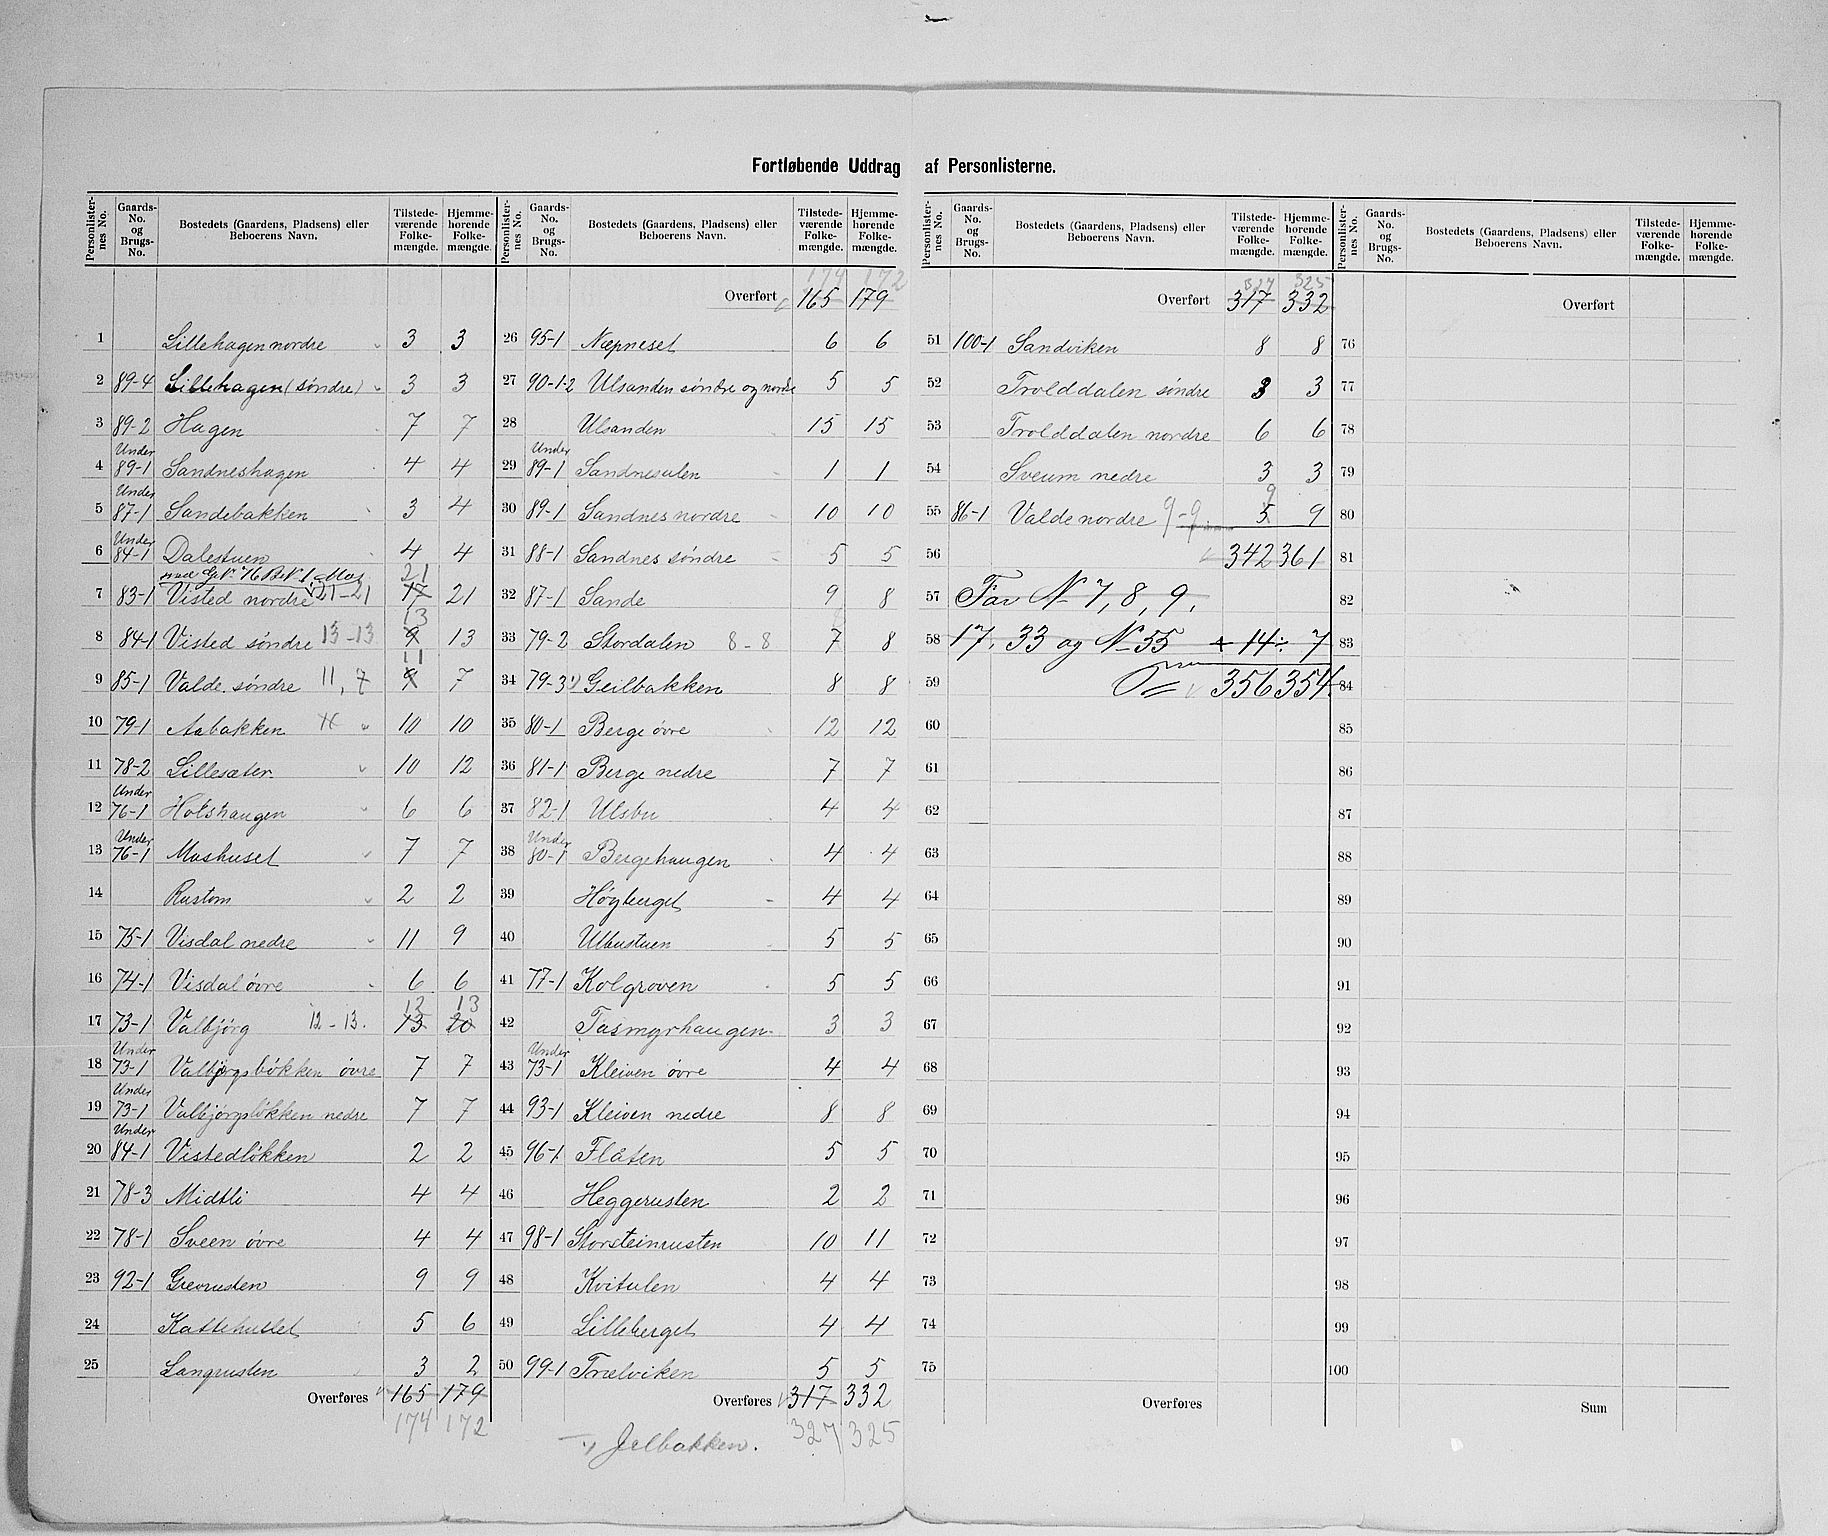 Fortløbende Uddrag af Personlisterne.
Personlisternes No. Gaards-No. og Brugs-No. Bostedets (Gaardens, Pladsens) eller Beboerens Navn. Tilstedeværende Folkemængde. Hjemmehørende Folkemængde.
1 Lillehagen nordre 3 3
2 89-4 Lillehagen (søndre) 3 3
3 89-2 Hagen 7 7
4 Under 89-1 Sandneshagen 4 4
5 Under 87-1 Sandebakken 3 4
6 Under 84-1 Dalestuen 4 4
7 83-1 Visted nordre 21-21 17 21 21
8 84-1 Visted søndre 13-13 9 13 13
9 85-1 Valde søndre 11, 7 9 11 7
10 79-1 Aabakken 10 10
11 78-2 Lillesæter 10 12
12 Under 76-1 Holshaugen 6 6
13 Under 76-1 Moshuset 7 7
14 Rustom 2 2
15 75-1 Visdal nedre 11 9
16 74-1 Visdal øvre 6 6
17 73-1 Valbjørg 12-13. 13 12 20 13
18 Under 73-1 Valbjørgsløkken øvre 7 7
19 Under 73-1 Valbjørgsløkken nedre 7 7
20 Under 84-1 Vistedløkken 2 2
21 78-3 Midtli 4 4
22 78-1 Sveen øvre 4 4
23 92-1 Grevrusten 9 9
24 Kattehuslet 5 6
25 Langrusten 3 2
Overføres 165 179
174 172
Personlisternes No. Gaards-No. og Brugs-No. Bostedets (Gaardens, Pladsens) eller Beboerens Navn. Tilstedeværende Folkemængde. Hjemmehørende Folkemængde.
174 172
Overført 165 179
26 95-1 Næpneset 6 6
27 90-1-2 Ulsanden søndre og nordre 5 5
28 Ulsanden 15 15
29 Under 89-1 Sandnesulen 1 1
30 89-1 Sandnes nordre 10 10
31 88-1 Sandnes søndre 5 5
32 87-1 Sande 9 8
33 79-2 Stordalen 8-8 7 8
34 79-3 1) Geilbakken 8 8
35 80-1 Berge øvre 12 12
36 81-1 Berge nedre 7 7
37 82-1 Ulsbu 4 4
38 Under 80-1 Bergehaugen 4 4
39 Høgberget 4 4
40 Ulbustuen 5 5
41 77-1 Kolgroven 5 5
42 Tasmyrhaugen 3 3
43 Under 73-1 Kleiven øvre 4 4
44 93-1 Kleiven nedre 8 8
45 96-1 Flaten 5 5
46 Heggerusten 2 2
47 98-1 Storsteinrusten 10 11
48 Kvitulen 4 4
49 Lilleberget 4 4
50 99-1 Trælviken 5 5
Overføres 317 332
327 325
1) Jelbakken.
Personlisternes No. Gaards-No. og Brugs-No. Bostedets (Gaardens, Pladsens) eller Beboerens Navn. Tilstedeværende Folkemængde. Hjemmehørende Folkemængde.
327 325
Overført 317 332
51 100-1 Sandviken 8 8
52 Trolddalen søndre 3 3
53 Trolddalen nordre 6 6
54 Sveum nedre 3 3
55 86-1 Valde nordre 9-9 9 5 9
56 342 361
57 Fav No 7, 8, 9,
58 17, 33 og No 55 + 14 ÷ 7
59 356 354
60
61
62
63
64
65
66
67
68
69
70
71
72
73
74
75
Overføres
Personlisternes No. Gaards-No. og Brugs-No. Bostedets (Gaardens, Pladsens) eller Beboerens Navn. Tilstedeværende Folkemængde. Hjemmehørende Folkemængde.
Overført
76
77
78
79
80
81
82
83
84
85
86
87
88
89
90
91
92
93
94
95
96
97
98
99
100
Sum